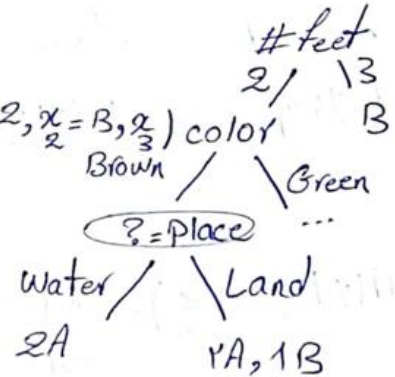 # feet
2 3
2, x₂ = B, x₃) color B
Brown Green
? = Place ...
Water Land
2A ۲A, 1B